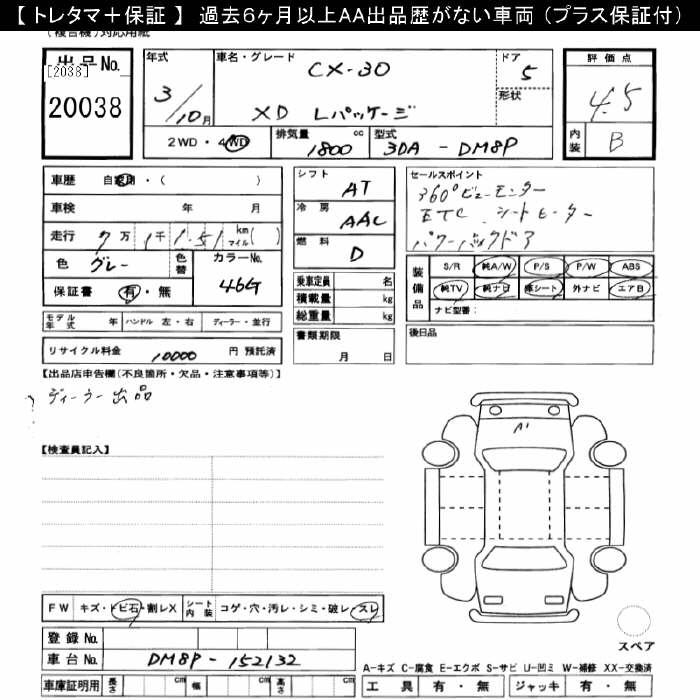 【 トレタマ＋保証 】 過去6ヶ月以上AA出品歴がない車両（プラス保証付）
（複合機）対応用紙
出品No.
[2038]
20038
年式
3/10月
車名・グレード
CX-30
XD Lパッケージ
ドア
5
形状
2WD・4WD
排気量
1800 cc
型式
3DA - DM8P
評価点
4.5
内装
B
車歴 自家用・（ ）
車検 年 月
走行 7万 1千 151 km マイル( )
色 グレー
色替
カラーNo.
46G
保証書 有・無
シフト
AT
冷房
AAC
燃料
D
セールスポイント
360°ビューモニター
ETC シートヒーター
パワーバックドア
装備品
S/R 純A/W P/S P/W ABS
純TV 純ナビ 革シート 外ナビ エアB
ナビ型番：
乗車定員 名
積載量 kg
総重量 kg
モデル年式 年 ハンドル 左・右 ディーラー・並行
リサイクル料金 10000 円 預託済
書類期限
月 日
後日品
【出品店申告欄（不良箇所・欠品・注意事項等）】
ディーラー出品
A1
【検査員記入】
FW キズ・トビ石・割レX
シート内装 コゲ・穴・汚レ・シミ・破レ・スレ
スペア
登録No.
車台No. DM8P - 152132
A-キズ C-腐食 E-エクボ S-サビ U-凹ミ W-補修 XX-交換済
車庫証明用 長さ cm 幅 cm 高さ cm
工具 有・無 ジャッキ 有・無